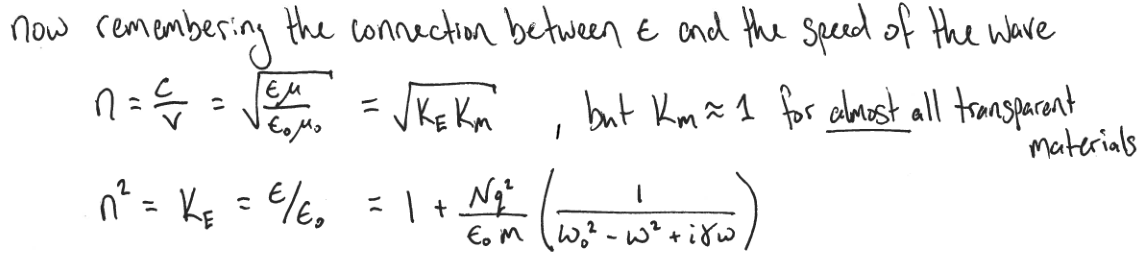 now remembering the connection between ε and the speed of the wave
n = c/v = √(εμ/ε₀μ₀) = √(K_E K_m) , but K_m ≈ 1 for almost all transparent
materials
n² = K_E = ε/ε₀ = 1 + Nq²/(ε₀m) (1/(ω₀² - ω² + iγω))